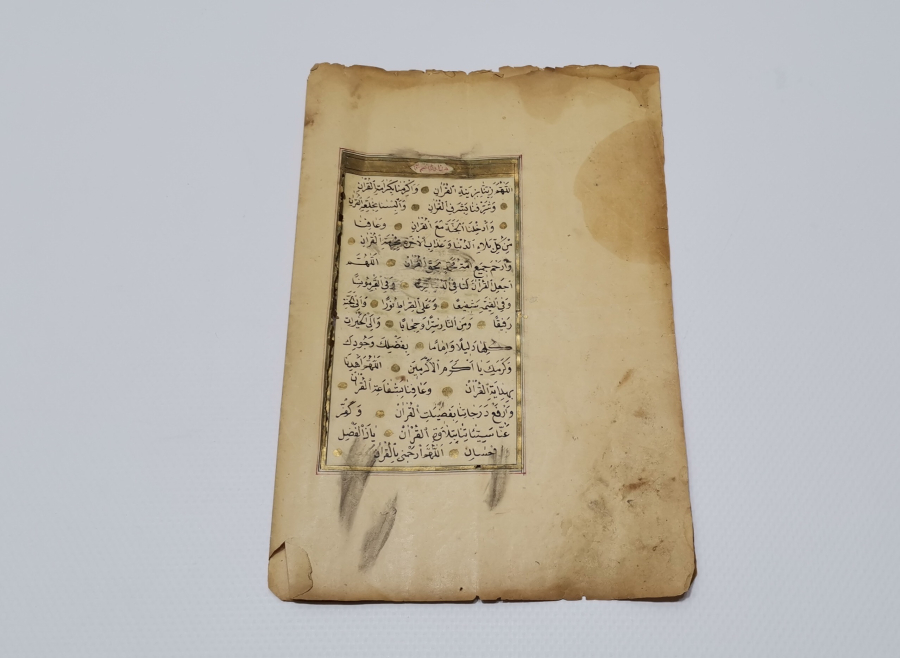 اَللّٰهُمَّ زَيِّنَّا بِزِينَةِ الْقُرْاٰنِ وَاَكْرِمْنَا بِكَرَامَةِ الْقُرْاٰنِ
وَشَرِّفْنَا بِشَرَافَةِ الْقُرْاٰنِ وَاَلْبِسْنَا بِخِلْعَةِ الْقُرْاٰنِ
وَاَدْخِلْنَا الْجَنَّةَ مَعَ الْقُرْاٰنِ وَعَافِنَا
مِنْ كُلِّ بَلَاءِ الدُّنْيَا وَعَذَابِ الْاٰخِرَةِ بِحُرْمَةِ الْقُرْاٰنِ
وَارْحَمْ جَمِيعَ اُمَّةِ مُحَمَّدٍ بِحَقِّ الْقُرْاٰنِ اَللّٰهُمَّ
اجْعَلِ الْقُرْاٰنَ لَنَا فِي الدُّنْيَا قَرِينًا وَفِي الْقَبْرِ مُونِسًا
وَفِي الْقِيٰمَةِ شَفِيعًا وَعَلَى الصِّرَاطِ نُورًا وَاِلَى الْجَنَّةِ
رَفِيقًا وَمِنَ النَّارِ سِتْرًا وَحِجَابًا وَاِلَى الْخَيْرَاتِ
كُلِّهَا دَلِيلًا وَاِمَامًا بِفَضْلِكَ وَجُودِكَ
وَكَرَمِكَ يَا اَكْرَمَ الْاَكْرَمِينَ اَللّٰهُمَّ اهْدِنَا
بِهِدَايَةِ الْقُرْاٰنِ وَعَافِنَا بِشَفَاعَةِ الْقُرْاٰنِ
وَارْفَعْ دَرَجَاتِنَا بِفَضِيلَةِ الْقُرْاٰنِ وَكَفِّرْ
عَنَّا سَيِّئَاتِنَا بِتِلَاوَةِ الْقُرْاٰنِ يَا ذَا الْفَضْلِ
وَالْاِحْسَانِ اَللّٰهُمَّ ارْحَمْنِي بِالْقُرْاٰنِ